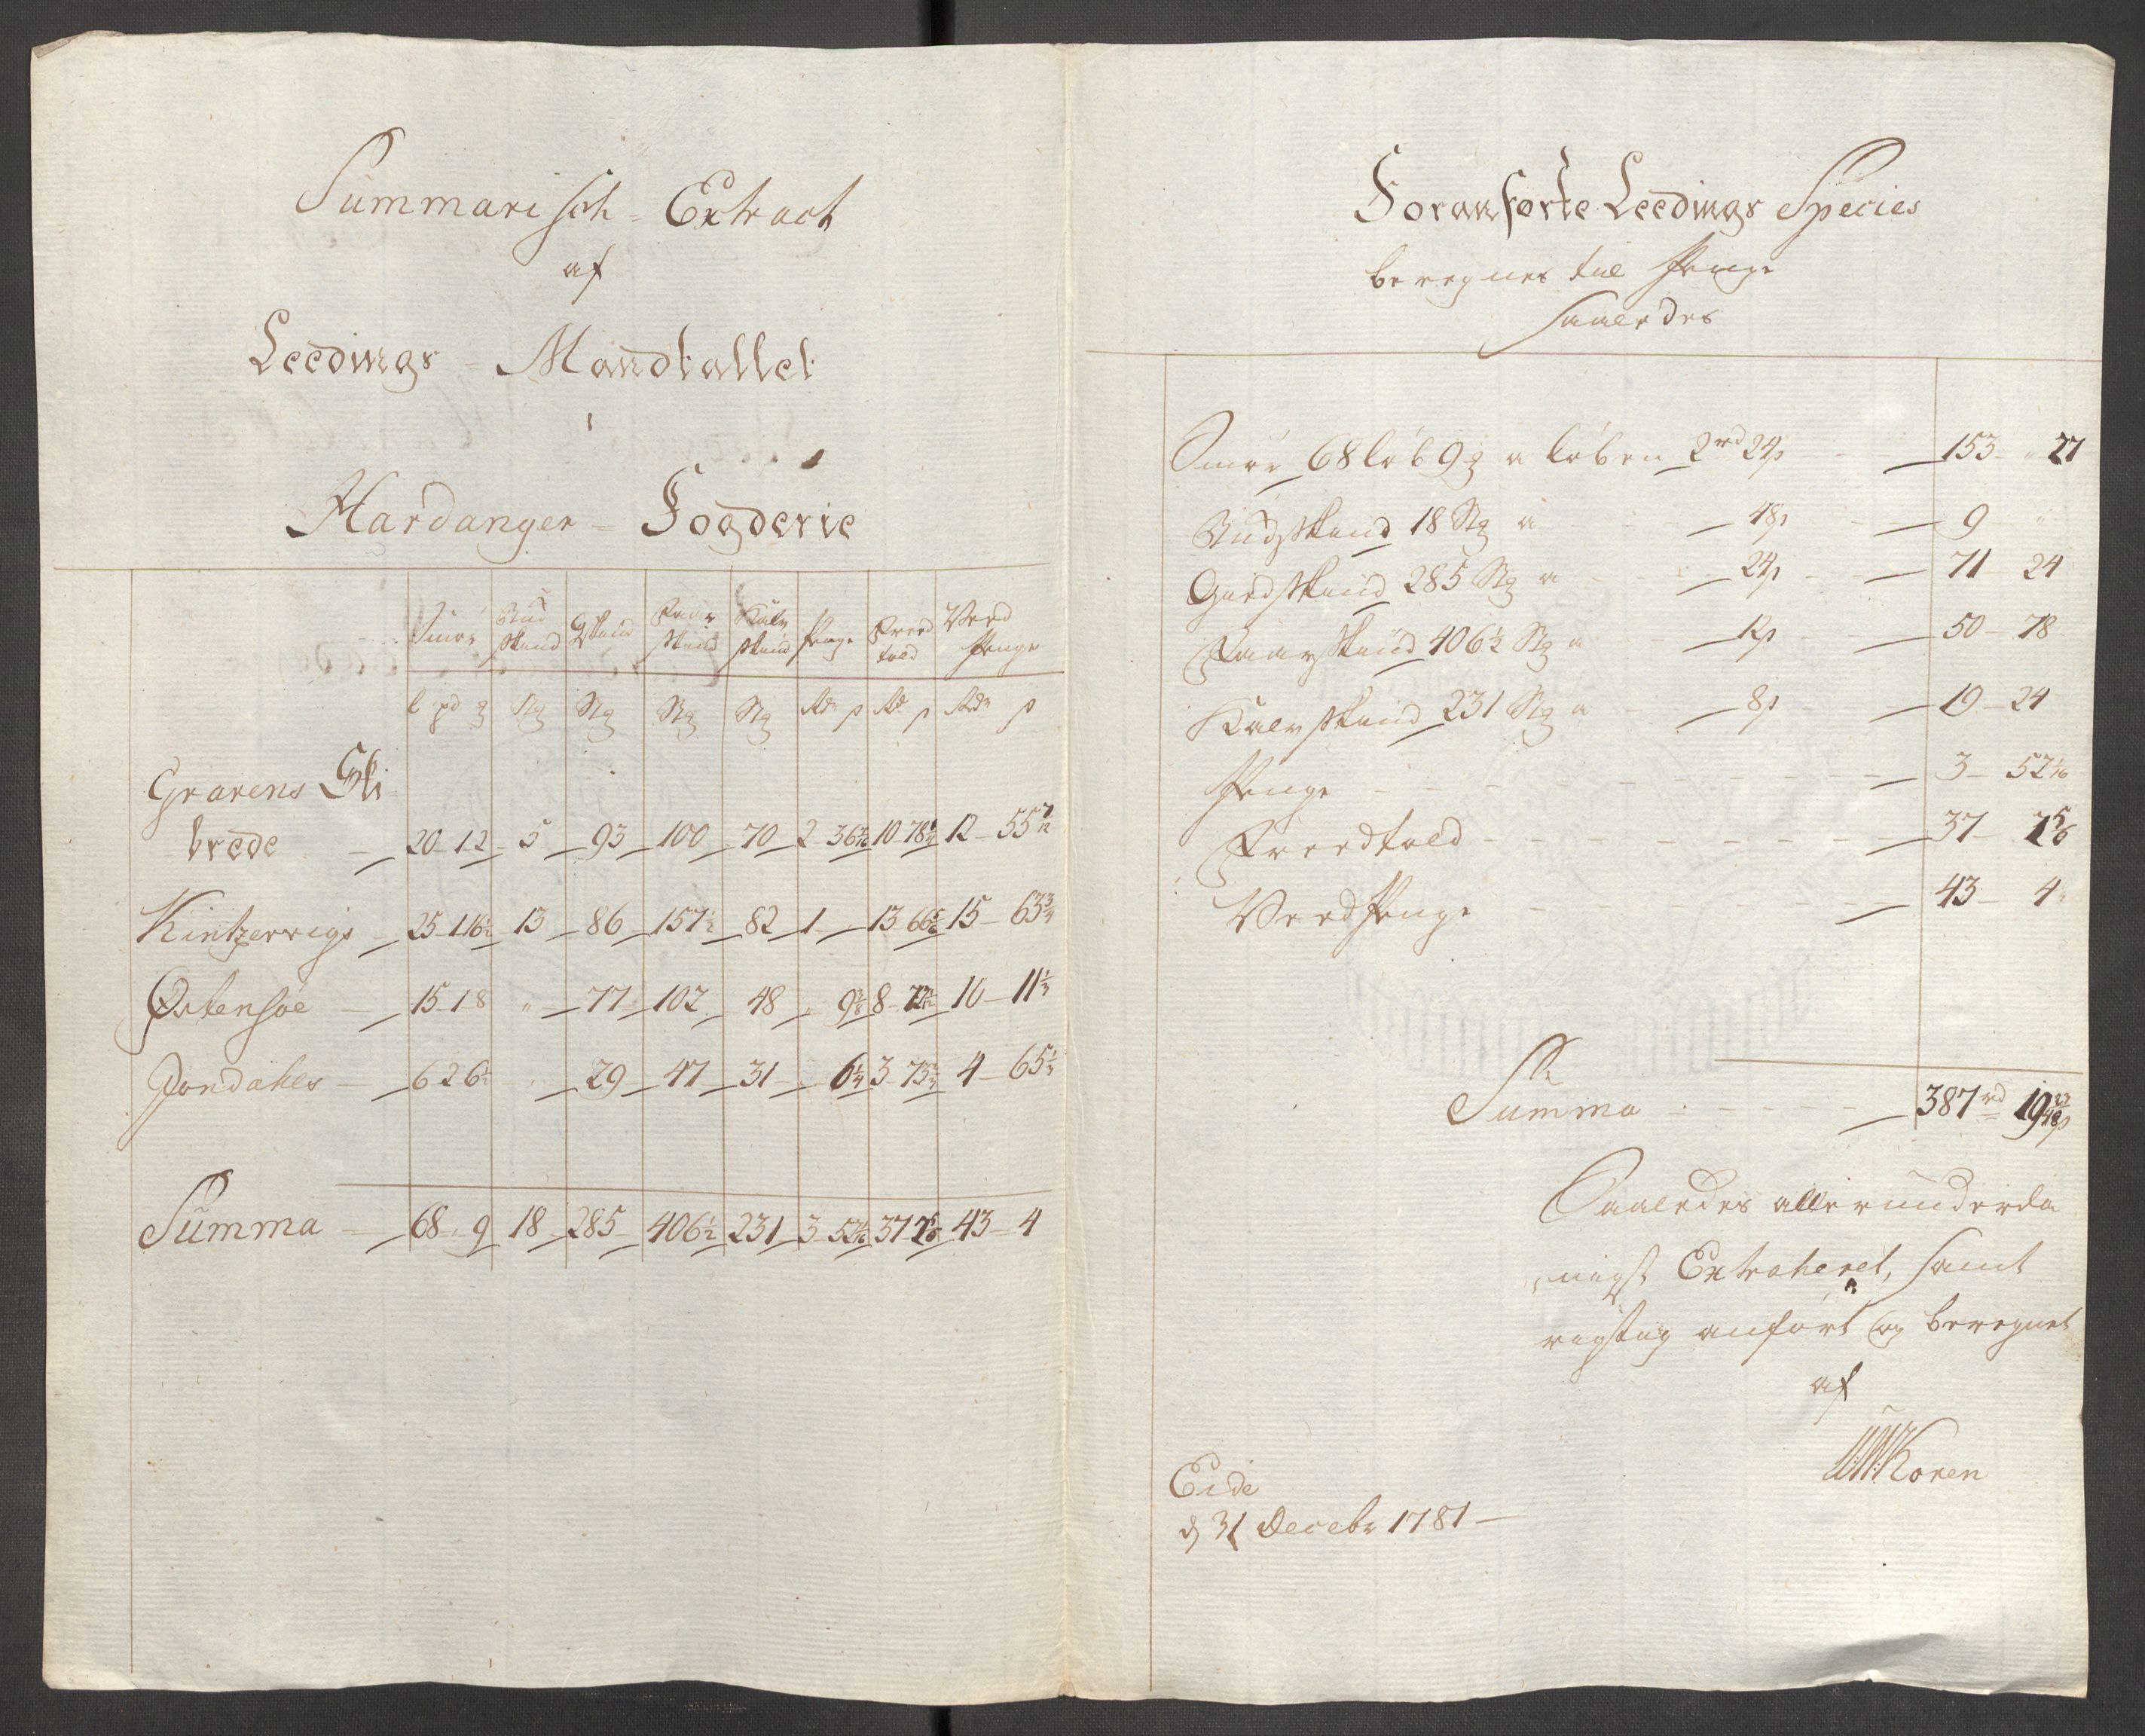 Summarisch - Extract
af
Leedings - Mandtallet
i
Hardanger - Fogderie
Smør Hud skind Gskind Faar skind Kalv skind Penge Freed told Verd Penge
l pd Stk Stk Stk Stk Rdr s Rd s Rdr s
Gravens Ski
brede 20 - 1 2 5 93 100 70 2 10 12 - 55 7/12
Kintzervigs 25 - 1 16 1/2 13 86 157 1/2 82 1 - 13 15 - 63 3/4
Østensøe 15 - 1 8 " 77 102 48 " 9 3/8 8 10 - 11 1/3
Jondahls 6 2 6 1/2 " 29 47 31 6 1/4 3 4 - 65 1/3
Summa 68 " 9 18 285 406 1/2 231 3 37 43 - 4
Foranførte Leedings Species
beregnes til Penge
saaledes
Smør 68 løb 9 a løben 2rd 24s 153 " 27
Hudskind 18 Stk a 48s 9 "
Giedskind 285 Stk a 24s 71 24
Faarskind 406 1/2 Stk a 12s 50 - 78
Kalvskind 231 Stk a 8s 19 - 24
Penge 3 - 52 1/16
Freedtold 37
Verdpenge 43 - 4
Summa 387rd
Saaledes allerunderda
nigst Extraheret, samt
rigtig anført og beregnet
af
Koren
Eide
d 31 Decebr 1781